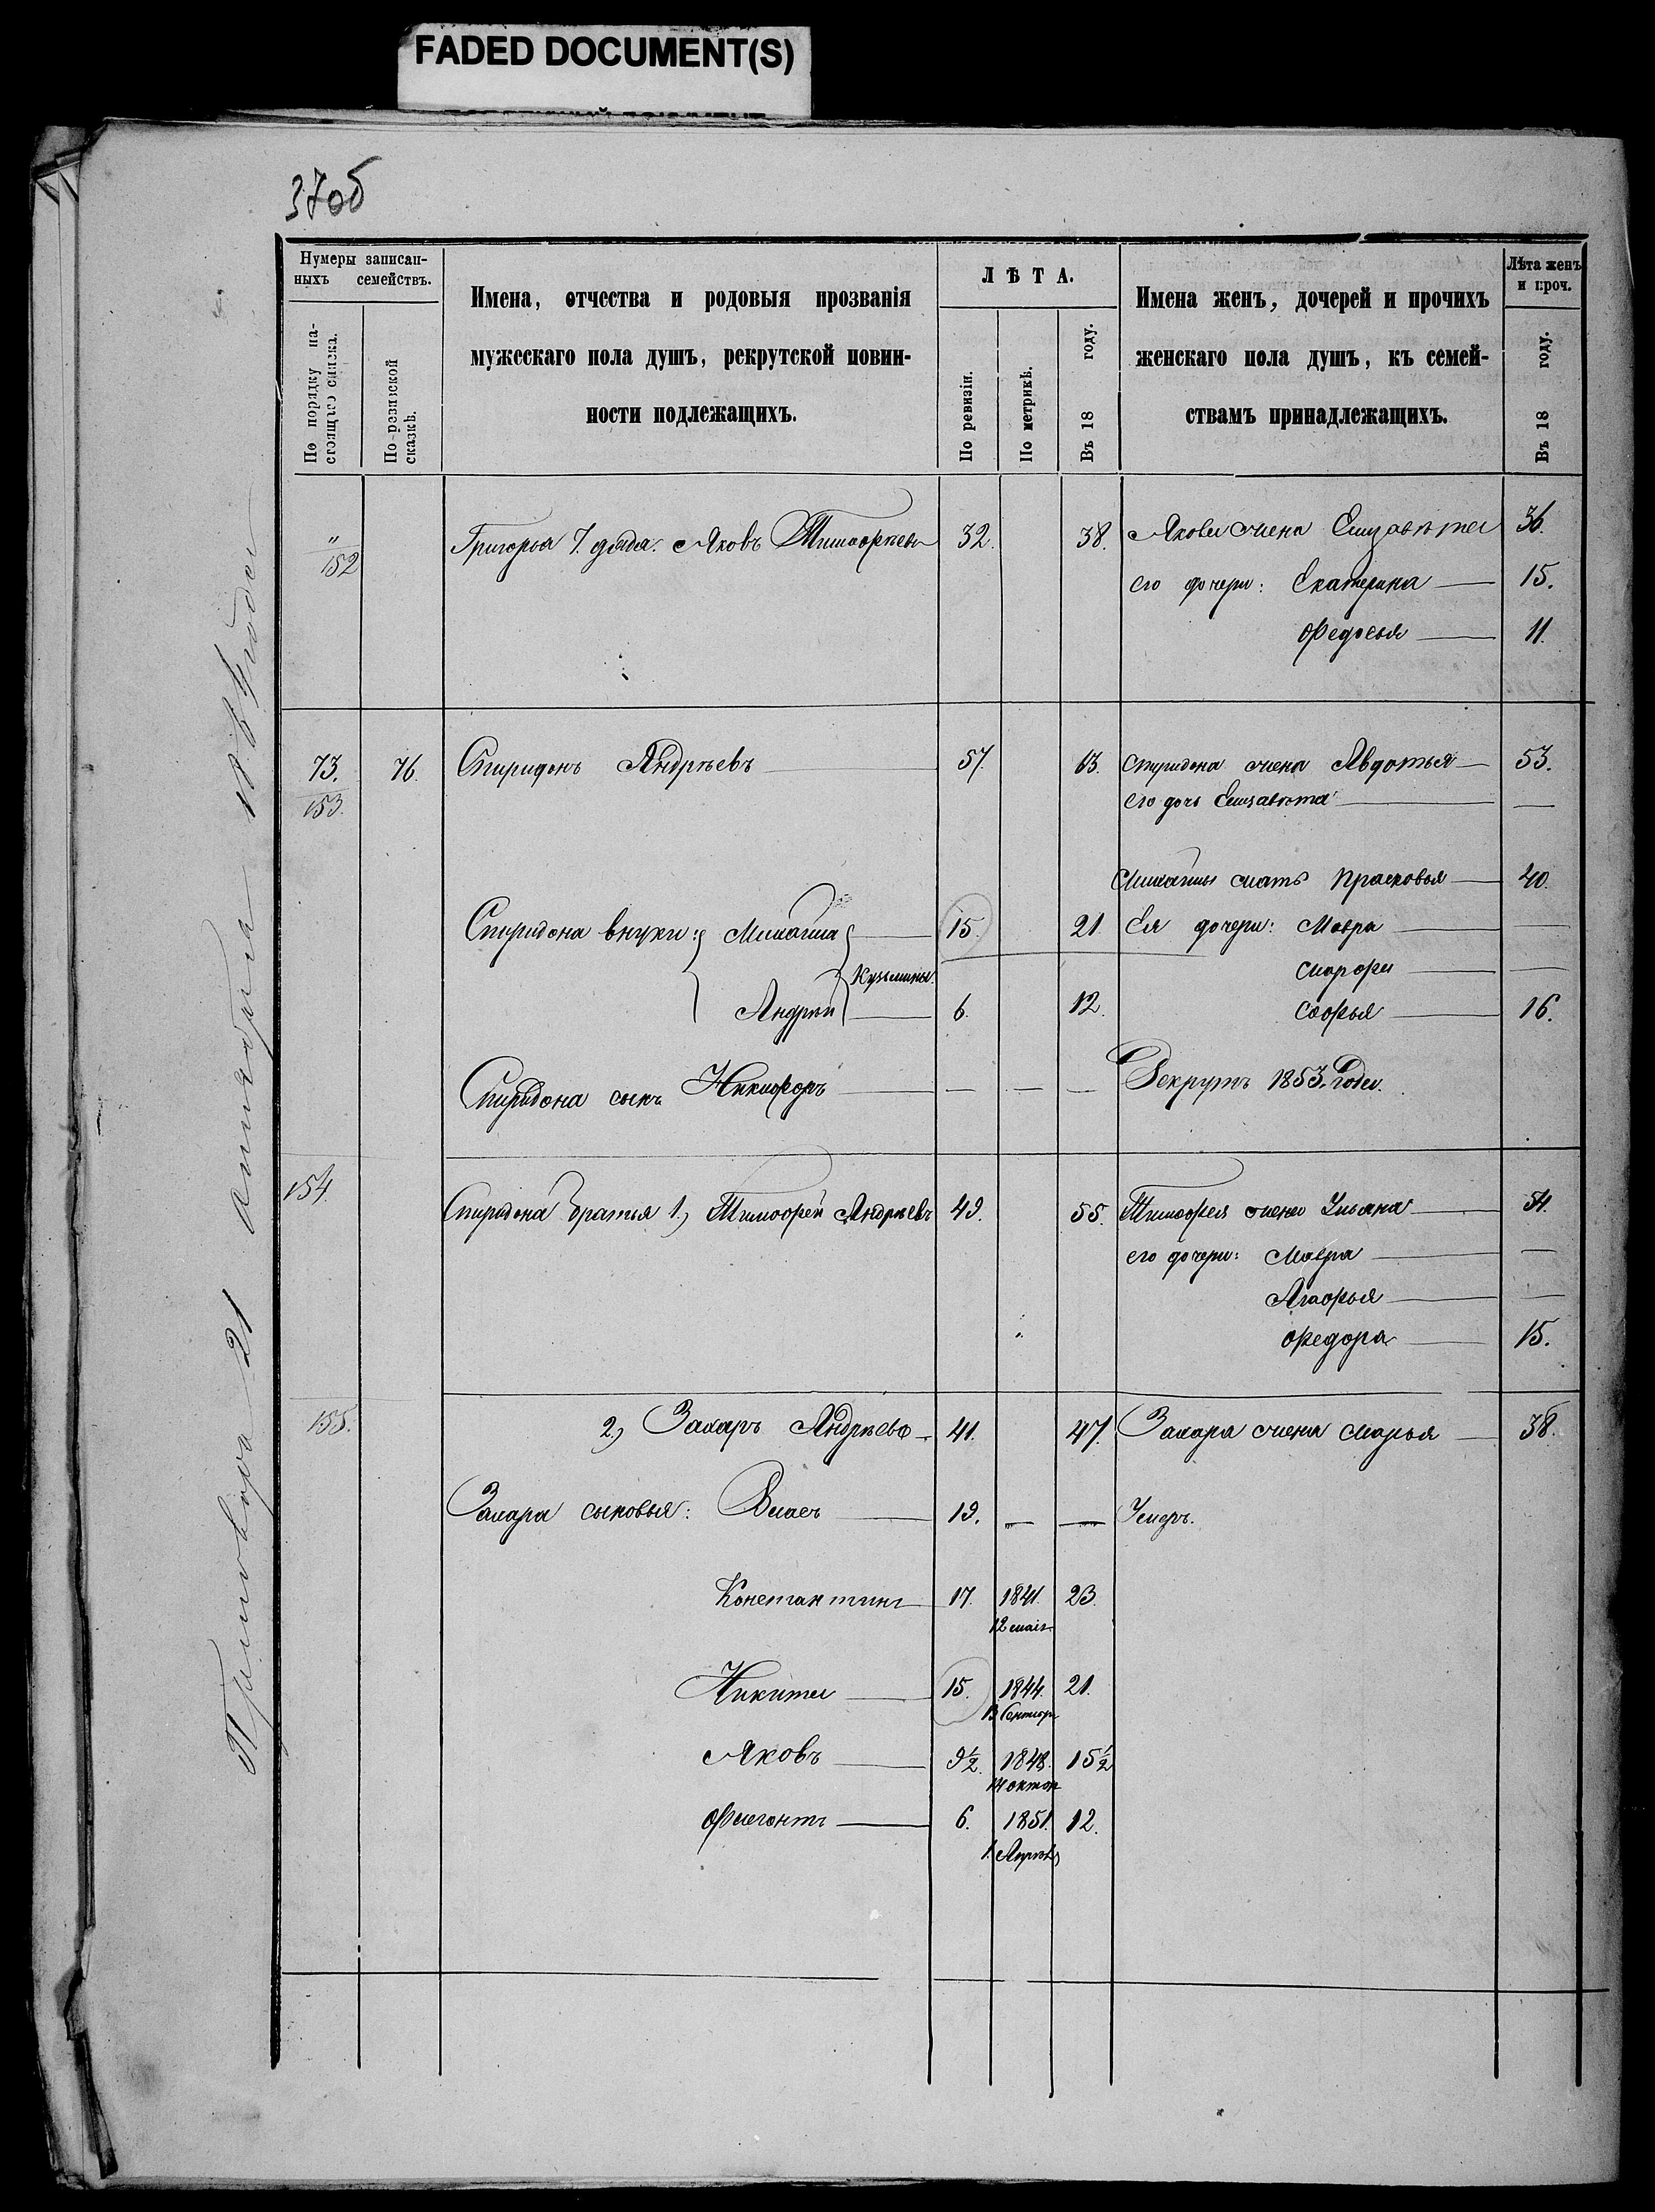 FADED DOCUMENT(S)
37об
Нумеры записан-
ныхъ семействъ.
По порядку на-
стоящаго списка.
По ревизской
сказкѣ.
Имена, отчества и родовыя прозванія
мужескаго пола душъ, рекрутской повин-
ности подлежащихъ.
ЛѢТА.
По ревизіи.
По метрикѣ.
Въ 18 году.
Имена женъ, дочерей и прочихъ
женскаго пола душъ, къ семей-
ствамъ принадлежащихъ.
Лѣта женъ
и проч.
Въ 18 году.
" 152 Григорья 7. дяда. Яковъ Тимофеевъ 32. 38. Якова жена Елизавета 36.
его дочери: Екатерина 15.
Федосья 11.
73. 76. Спиридонъ Андреевъ 57. 63. Спиридона жена Авдотья 53.
153. его дочь Елизавета —
мать Прасковья 40.
Спиридона внуки: 15. 21. Ея дочери: Мавра —
Кузьмины. Марфа —
Андрей 6. 12. Софья 16.
Спиридона сынъ Никифоръ — — — Рекрутъ 1853. года.
154. Спиридона братья 1.) Тимофей Андреевъ 49. 55. Тимофея жена Ульяна 54.
его дочери: Мавра —
Агафья —
Федора 15.
155. 2.) Захаръ Андреевъ 41. 47. Захара жена Марья 38.
Захара сыновья: Власъ 19. — — Умеръ.
Константинъ 17. 1841. 23.
12 мая
Никита 15. 1844. 21.
13 Сентябр
Яковъ 9½. 1848. 15½
14 октяб
Флегонтъ 6. 1851. 12.
1. Апрѣль
Приговора 21 сентября года